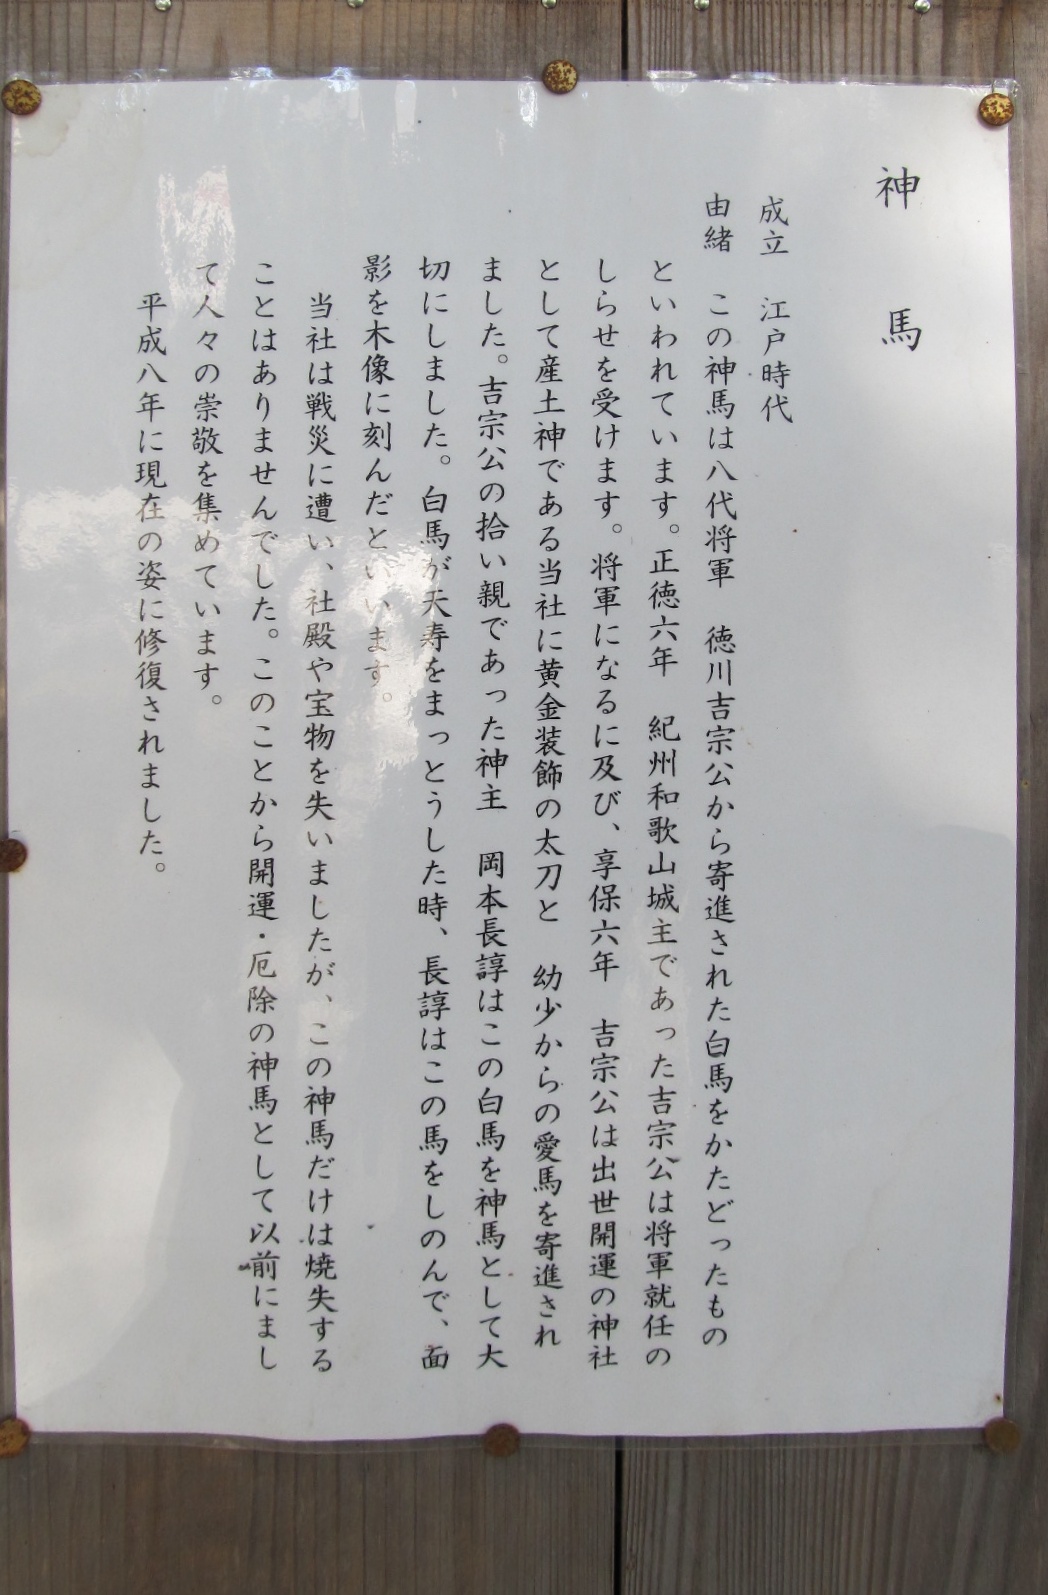 神馬
成立　江戸時代
由緒　この神馬は八代将軍　徳川吉宗公から寄進された白馬をかたどったもの
といわれています。正徳六年　紀州和歌山城主であった吉宗公は将軍就任の
しらせを受けます。将軍になるに及び、享保六年　吉宗公は出世開運の神社
として産土神である当社に黄金装飾の太刀と　幼少からの愛馬を寄進され
ました。吉宗公の拾い親であった神主　岡本長諄はこの白馬を神馬として大
切にしました。白馬が天寿をまっとうした時、長諄はこの馬をしのんで、面
影を木像に刻んだといいます。
当社は戦災に遭い、社殿や宝物を失いましたが、この神馬だけは焼失する
ことはありませんでした。このことから開運・厄除の神馬として以前にまし
て人々の崇敬を集めています。
平成八年に現在の姿に修復されました。